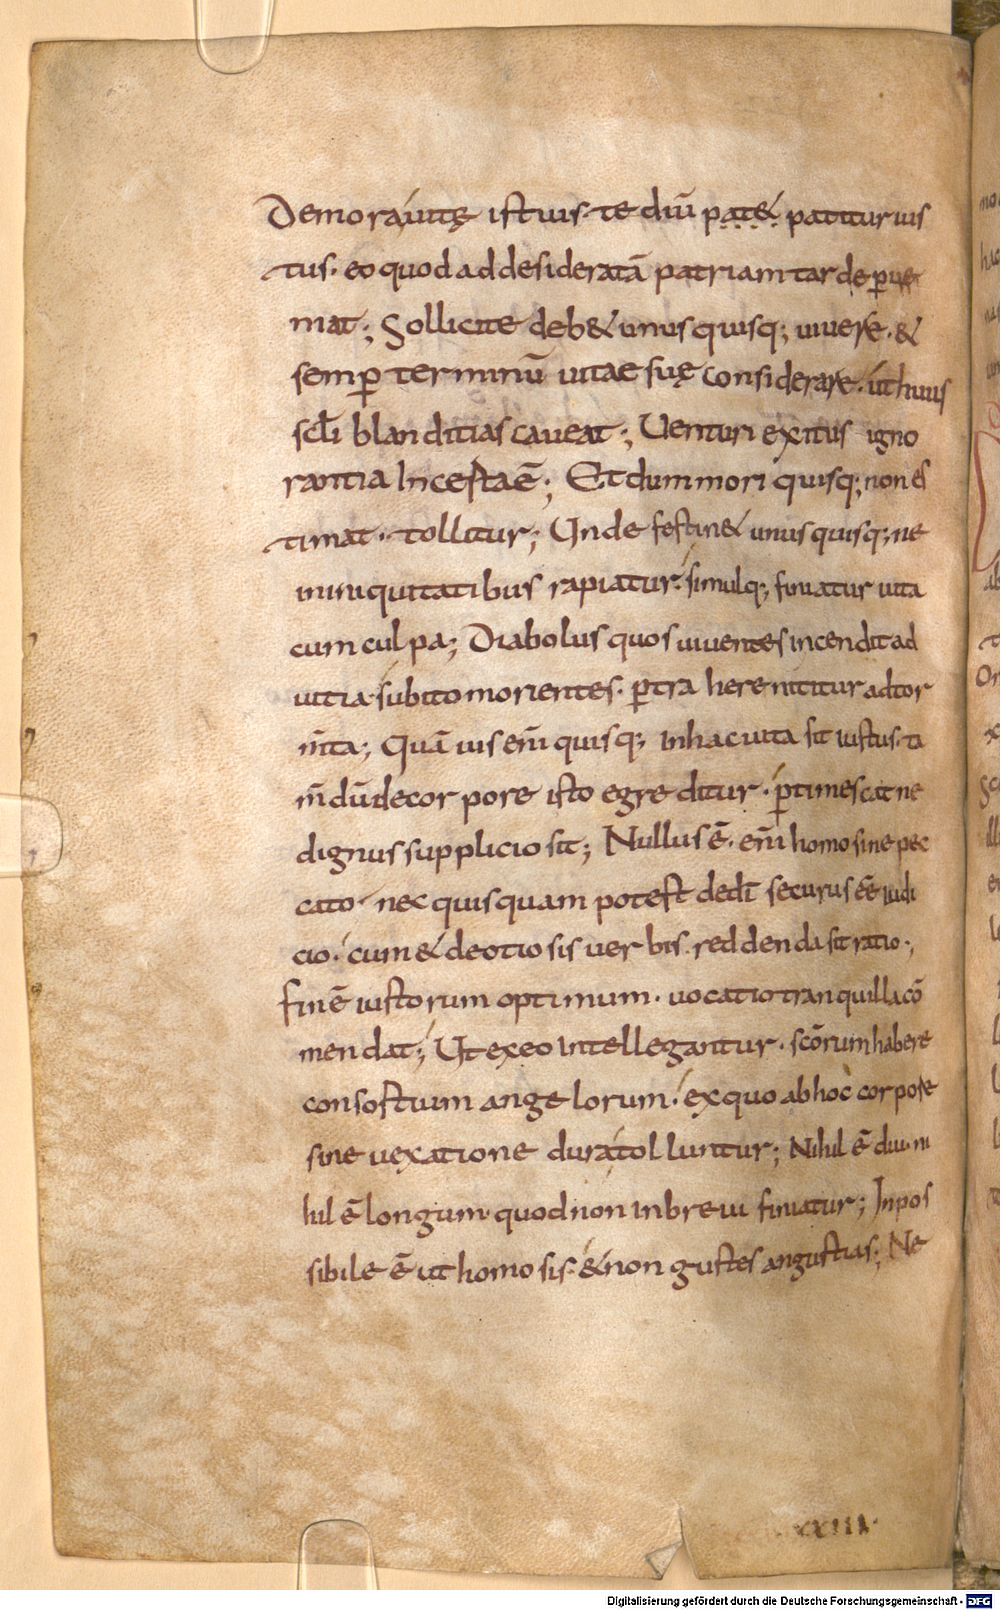 Demora uitę istius. te diū patet patitur ius
tus. eo quod ad desideratā patriam tarde perue
niat; Sollicite deb& unusquisq; uiuere. &
semp terminū uitae suę considerare. ut huius
scli blanditias caueat; Uenturi exitus igno
rantia Incesta ē; Et dum mori quisq; non es
timat. tollitur; Unde festin& unusquisq; ne
in iniquitatibus rapiatur. simulq; finiatur uita
cum culpa; Diabolus quos uiuentes incendit ad
uitia. subito morientes. ptrahere nititur ad tor
mta; Quāuis em quisq; in hac uita sit iustus. ta
m̄ dū de corpore isto egreditur. ptimescat ne
dignus supplicio sit; Nullus ē. em homo sine pec
cato. nec quisquam potest de dei securus eē iudi
cio. cum & de otiosis uerbis. reddenda sit ratio;
finē iustorum optimum. uocatio tranquilla cō
mendat; Ut ex eo intellegantur. scōrum habere
consostium angelorum. ex quo ab hoc corpore
sine uexatione dura tolluntur; Nihil ē diu. ni
hil ē longum quod non in breui finiatur; Inpos
sibile ē ut homo sis. & non gustes angustias; Ne
XXIII.
Digitalisierung gefördert durch die Deutsche Forschungsgemeinschaft - DFG